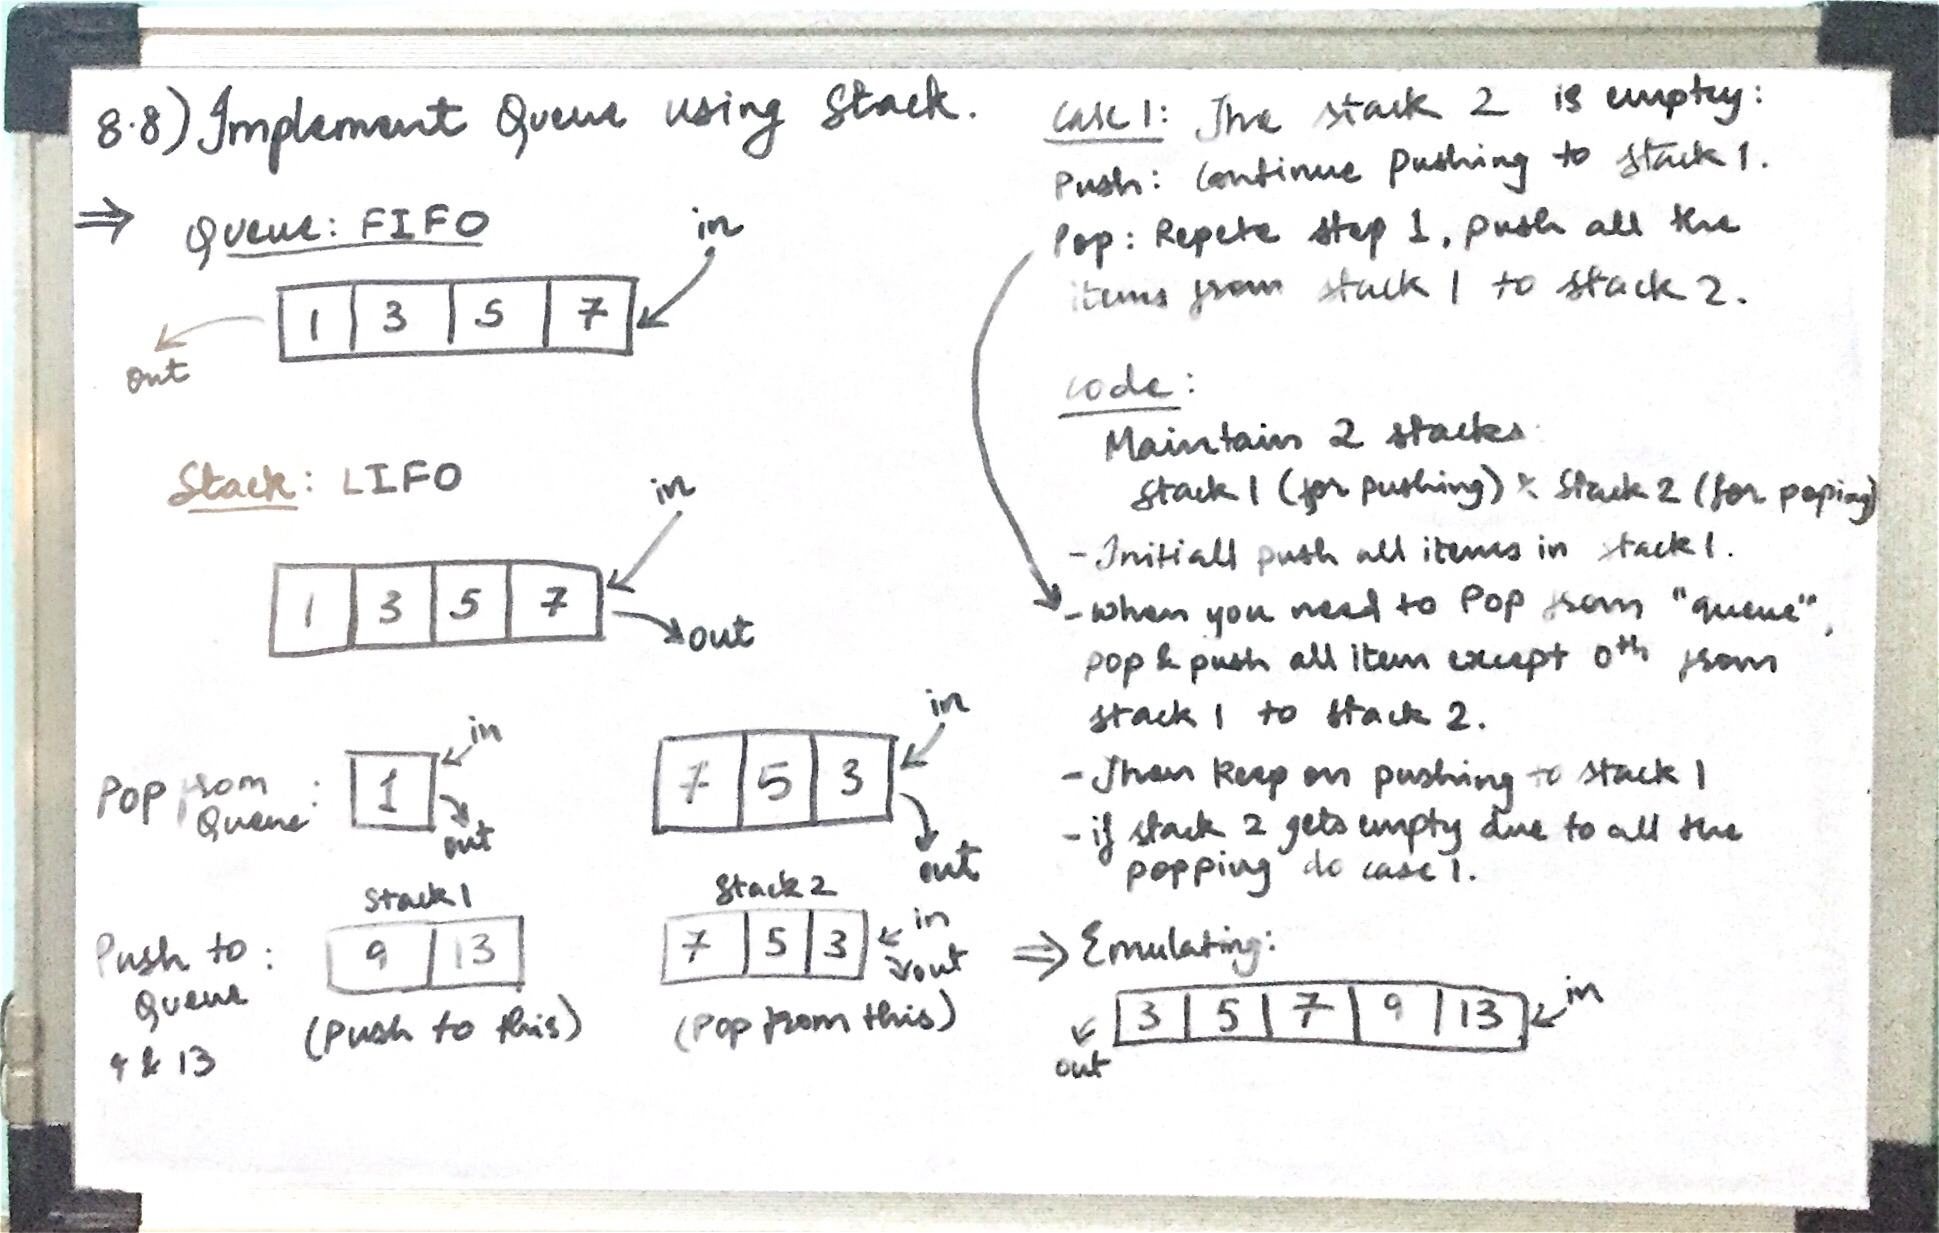 8.8) Implement Queue using Stack.
⇒ Queue: FIFO
in
1 3 5 7
out
Stack: LIFO
in
1 3 5 7
out
Pop from Queue:
in
1
out
in
7 5 3
out
Push to Queue: 9 & 13
Stack 1
9 13
(Push to this)
Stack 2
7 5 3
in
out
(Pop from this)
Case 1: The stack 2 is empty:
Push: Continue Pushing to Stack 1.
Pop: Repete step 1, push all the
items from stack 1 to stack 2.
Code:
Maintain 2 stacks
Stack 1 (for pushing) & Stack 2 (for poping)
- Initiall push all items in stack 1.
- when you need to Pop from "queue",
pop & push all item except 0th from
stack 1 to stack 2.
- Then keep on pushing to stack 1
- if stack 2 gets empty due to all the
popping do case 1.
⇒ Emulating:
3 5 7 9 13
in
out